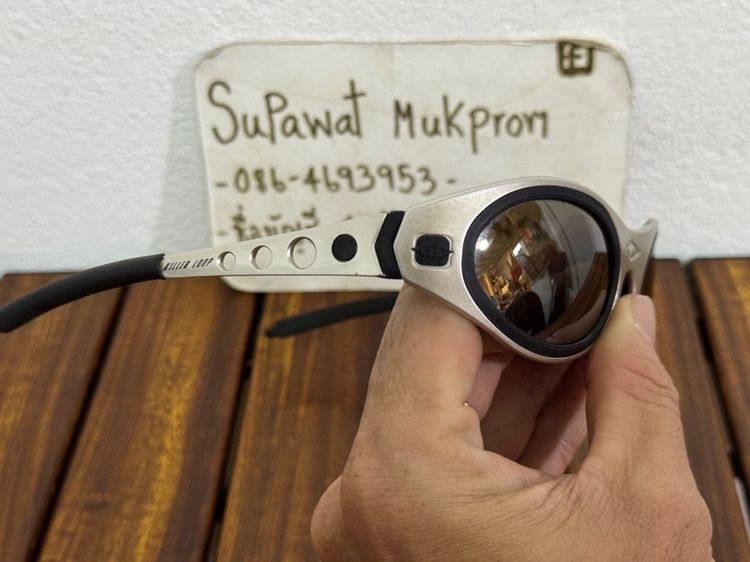 Supawat Mukprom
-086-4693953-
KILLER LOOP